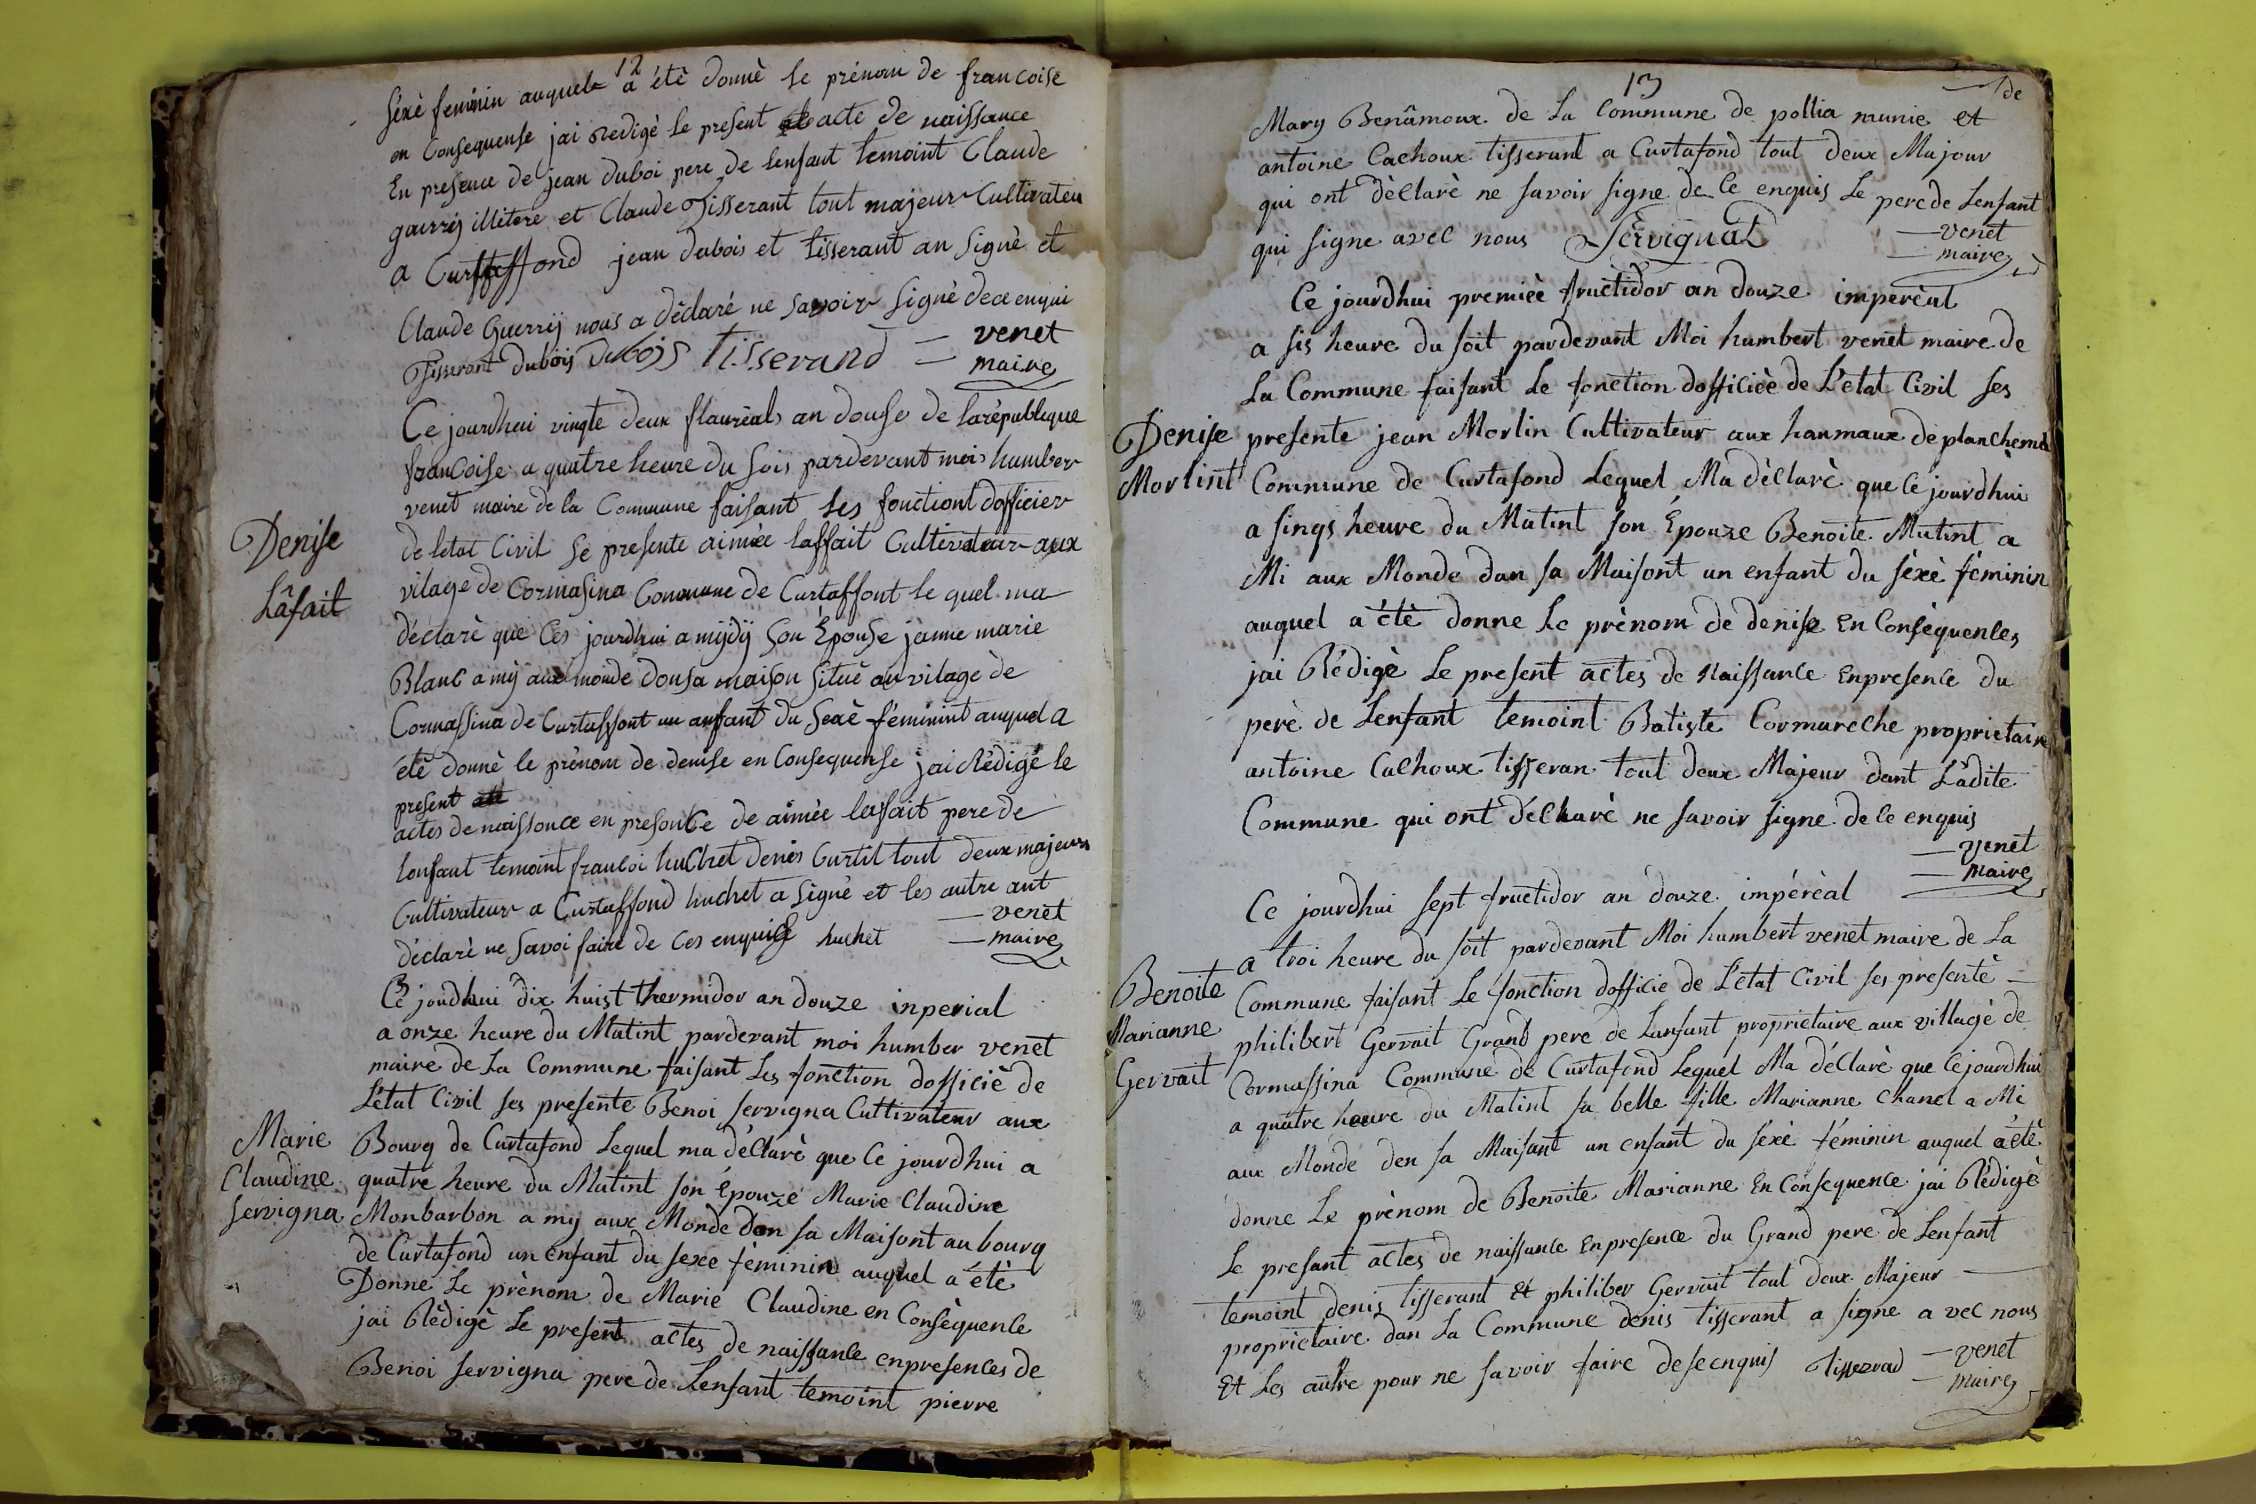 12
séxè feminin auquel a étè donnè le prénom de francoise
en Consequense jai redigè le present acte de naissance
En presence de jean duboi pere de lenfant temoint Claude
guerrij illitere et Claude Tisserant tout majeur Cultivateu
a Curtaffond jean dubois et tisserant an signè et
Claude Guerrij nous a dèclaré ne savoir signè dece enqui
Tisserant dubois Dubois tisserand — venet
— maire
Ce jourdhui vingte deux flaurèal an douse de la républeque
francoise a quatre heure du soir pardevant moi humber
venet maire de la Commune faisant les fonctiont dofficier
de letat Civil se presente aimée laffait Cultivateur aux
Denise
Lâfait
vilage de Cormasina Commune de Curtaffont le quel ma
déclarè que Ces jourdhui a mijdij son Épouse janne marie
Blanc a mij aux monde donsa maison situè au vilage de
Cormassina de Curtaffont un anfant du sexè féminint auquel a
étè donnè le prénom de denise en Consequense jai Rédigé le
present
actes de naissonce en presonce de aimèe lasfait pere de
lonfant temoint francoi huchet denis Curtil tout deux majeur
Cultivateur a Curtaffond huchet a signè et les autre ant
déclarè ne savoi faire de Ces enquis huchet — venet
— maire
Ce joudhui dix huist thermidor an douze inperial
a onze heure du Matint pardevant moi humber venet
maire de La Commune faisant Les fonction dofficiè de
Létat Civil ses presente Benoi servigna Cultivateur aux
Marie
Claudine
servigna
Bourg de Curtafond Lequel ma déClarè que Ce jourdhui a
quatre heure du Matint son Épouze Marie Claudine
Monbarbon a mij aux Monde dan sa Maisont au bourg
de Curtafond un enfant du sexe fèminin auquel a étè
Donne Le prènom de Marie Claudine en Consèquence
jai Rèdigè Le present actes de naissance enpresences de
Benoi servigna pere de Lenfant temoint pierre
13
de
Mary Benâmoux de La Commune de pollia munie et
antoine Cachoux tisserant a Curtafond tout deux Majour
qui ont dèclarè ne savoir signe de Ce enquis Le pere de Lenfant
qui signe avec nous Servignat — venet
— maire
Ce jourdhui premiee fructidor an douze imperèal
a sis heure du soit pardevant Moi humbert venet maire de
La Commune faisant Le fonction dofficièe de L'etat Civil ses
Denise
Morlint
presente jean Morlin Cultivateur aux haumaux de planchema
Commune de Curtafond Lequel Ma dèClarè que Ce jourdhui
a sinqs heure du Matint son Épouze Benoite Mutint a
Mi aux Monde dan sa Maisont un enfant du sèxè féminin
auquel a étè donne Le prènom de denise En Consèquences
jai Rédigè Le present actes de Naissance Enpresence du
perè de Lenfant temoint Batiste Cormareche proprietaire
antoine Cachoux tisseran tout deux Majeur dant Ladite
Commune qui ont déClarè ne savoir signe de Ce enquis
— venet
— maire
Ce jourdhui sept fructidor an douze impérèal
a troi heure du soit pardevant Moi humbert venet maire de La
Benoite
Marianne
Gervait
Commune faisant Le fonction dofficie de L'etat Civil ses presentè
philibert Gervait Grand pere de Lanfant proprietaire aux village de
Cormassina Commune de Curtafond Lequel Ma déClarè que Cejourdhui
a quatre heure du Matint sa belle fille Marianne Chanel a Mi
aux Monde den sa Maisant un enfant du sexè féminin auquel a étè
donne Le prènom de Benoite Marianne En Consequence jai Rédigè
Le present actes de naissance Enpresence du Grand pere de Lenfant
temoint denis tisserant Et philiber Gervait tout deux Majeur
proprietaire dan La Commune denis tisserant a signe avec nous
Et Les autre pour ne savoir faire desecnquis tisserad — venet
— maire